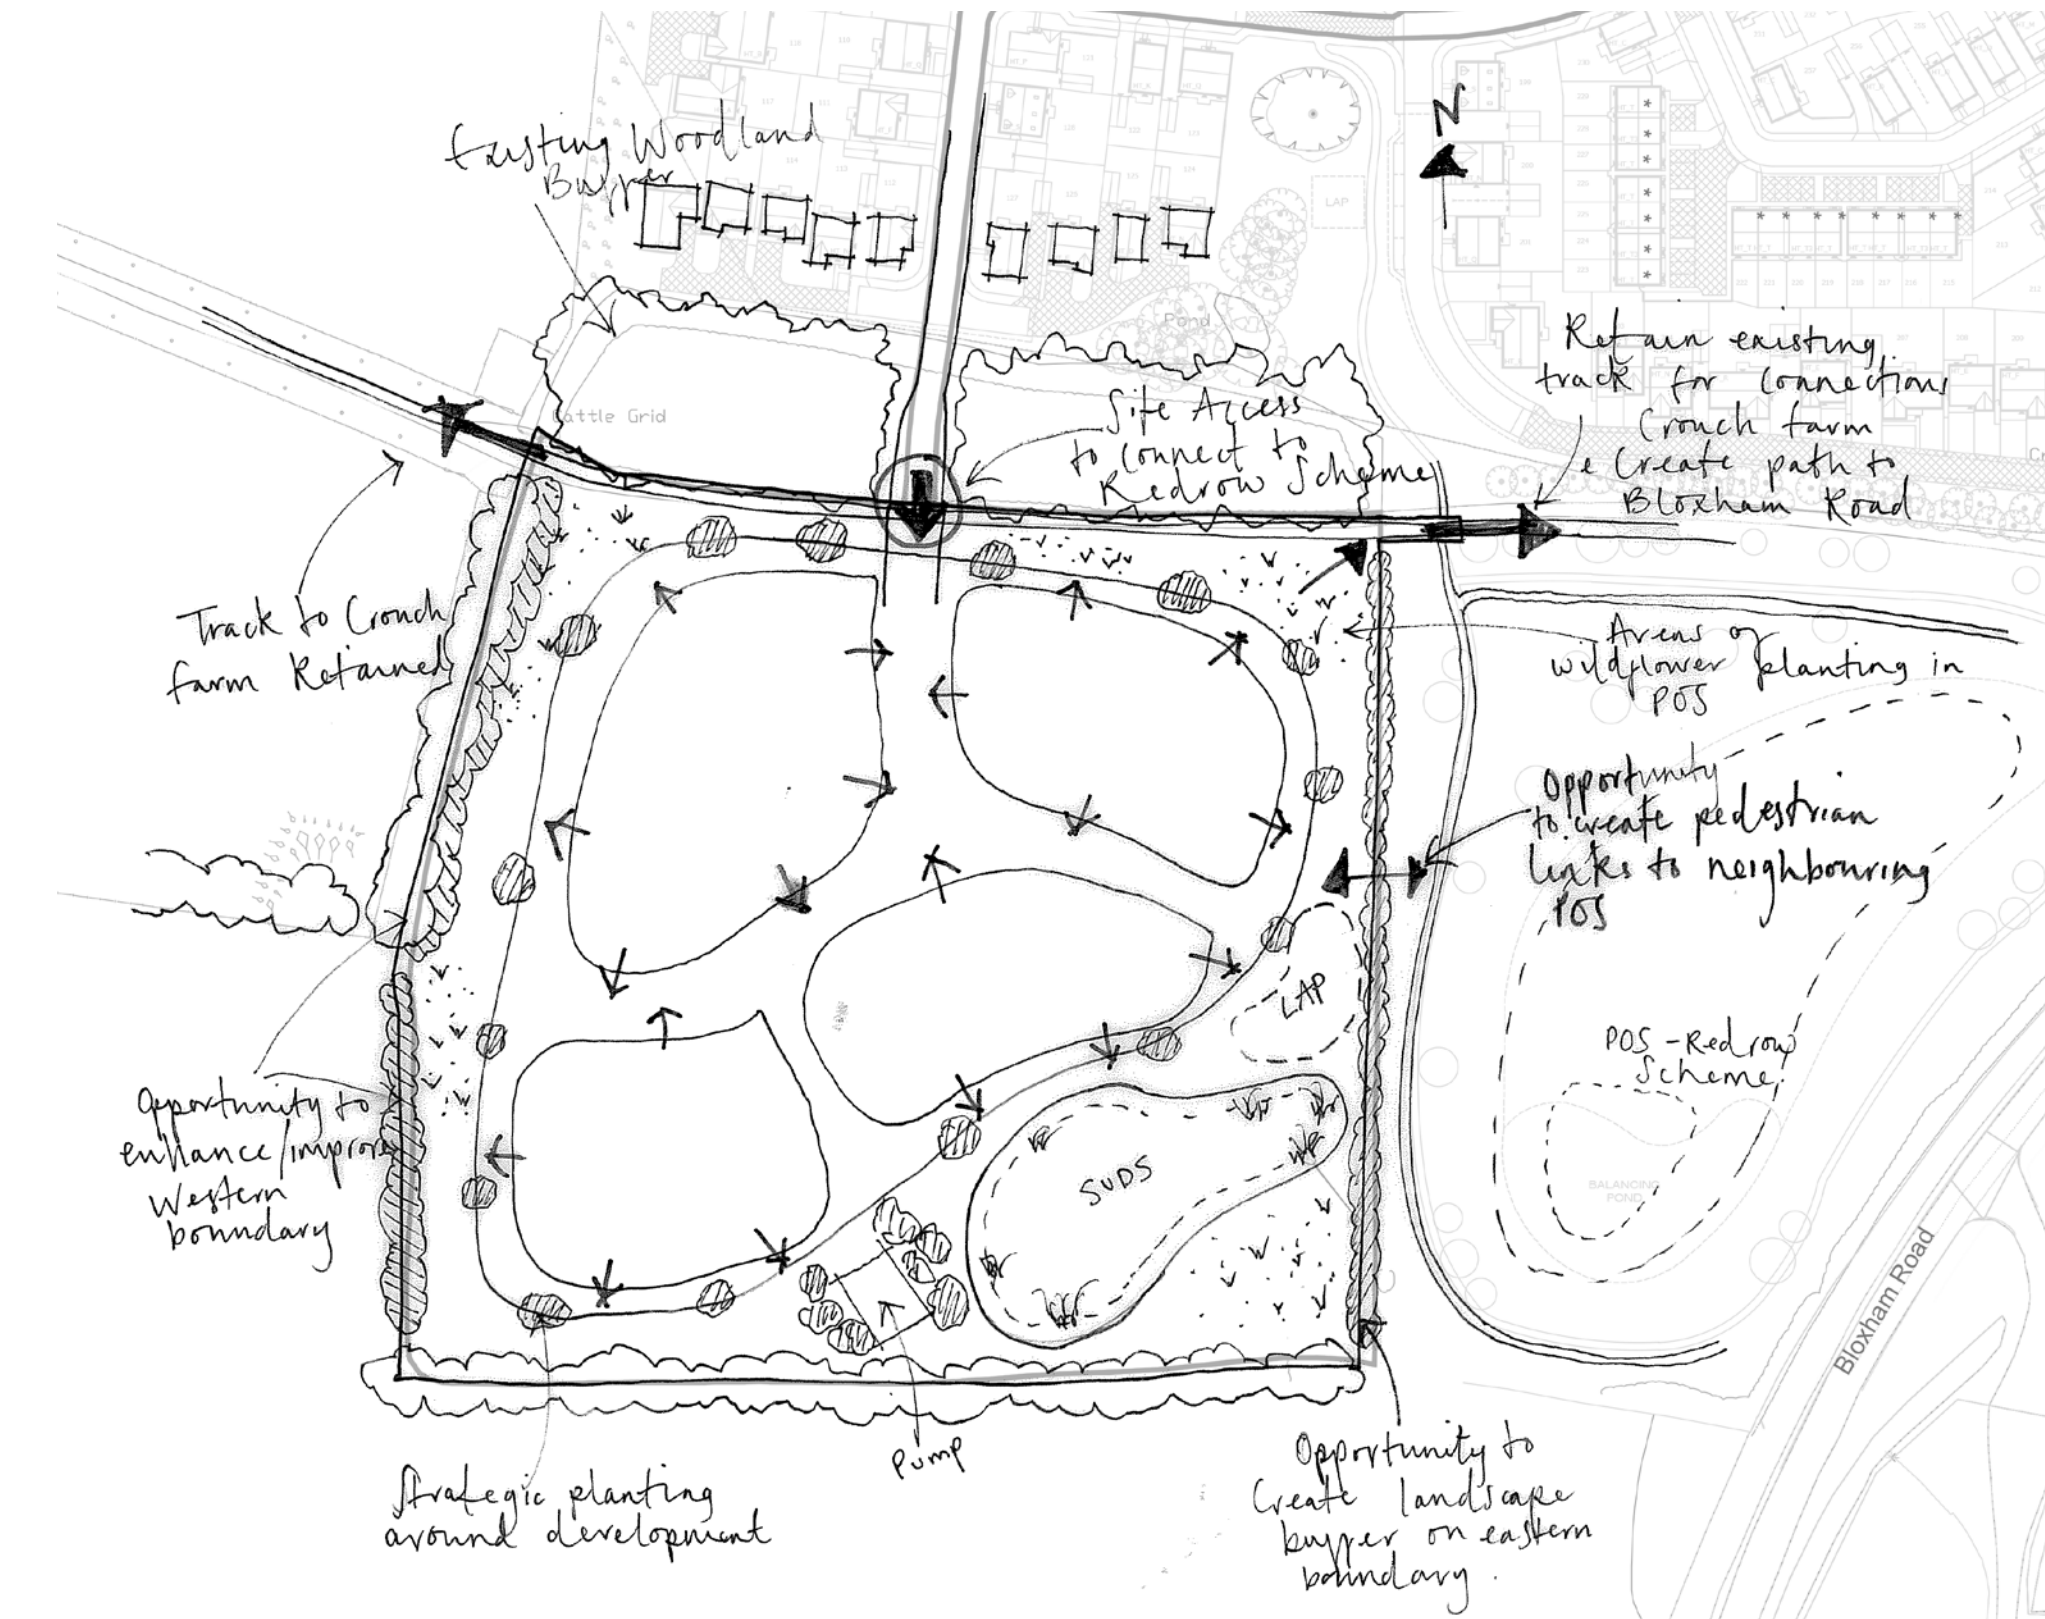 Existing Woodland
Buffer
N
LAP
Pond
Cattle Grid
Site Access
to connect to
Redrow Scheme
Retain existing
track for connections
Crouch farm
& Create path to
Bloxham Road
Track to Crouch
farm Retained
Areas of
wildflower planting in
POS
Opportunity
to create pedestrian
links to neighbouring
POS
LAP
POS - Redrow
Scheme
BALANCING
POND
SUDS
Opportunity to
enhance/improve
Western
boundary
Bloxham Road
Pump
Strategic planting
around development
Opportunity to
Create landscape
buffer on eastern
boundary.